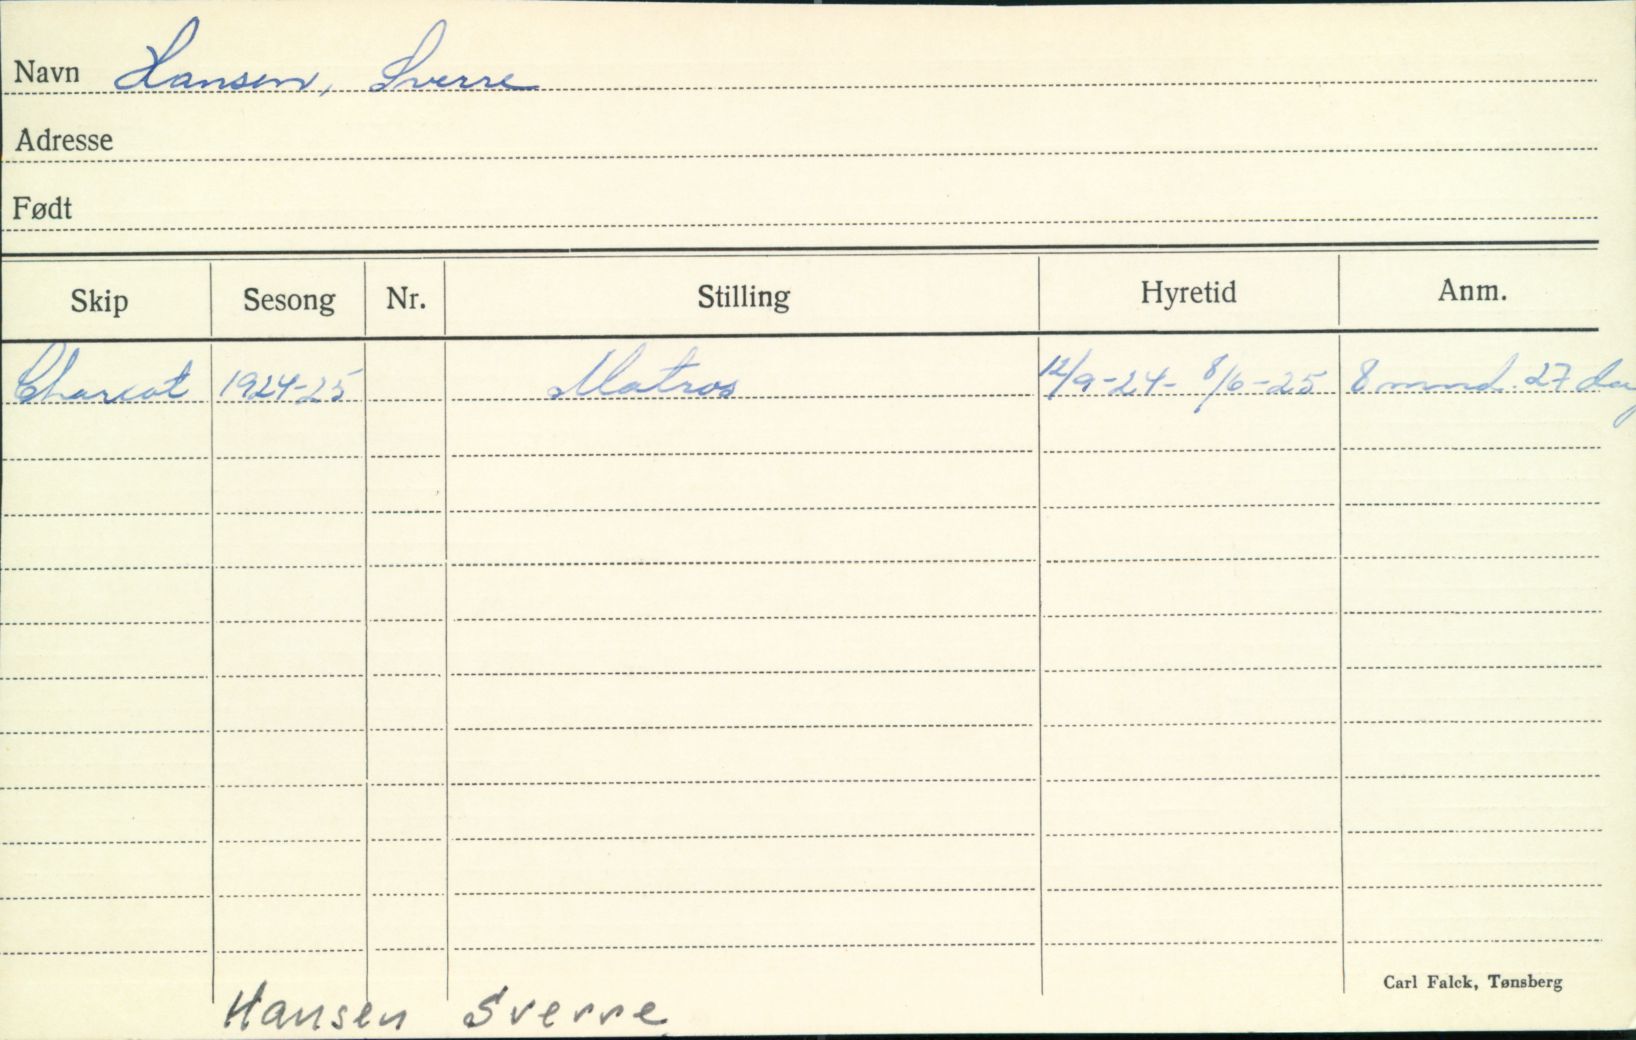 Navn Hansen, Sverre
Adresse
Født
Skip Sesong Nr. Stilling Hyretid Anm.
Charcot 1924-25 Matros 12/9-24- 8/6-25 8 mnd. 27 dag
Carl Falck, Tønsberg
Hansen Sverre